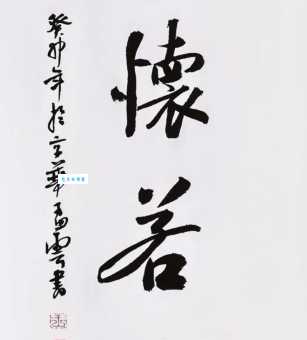 懷若
癸卯年於京華禹雲書